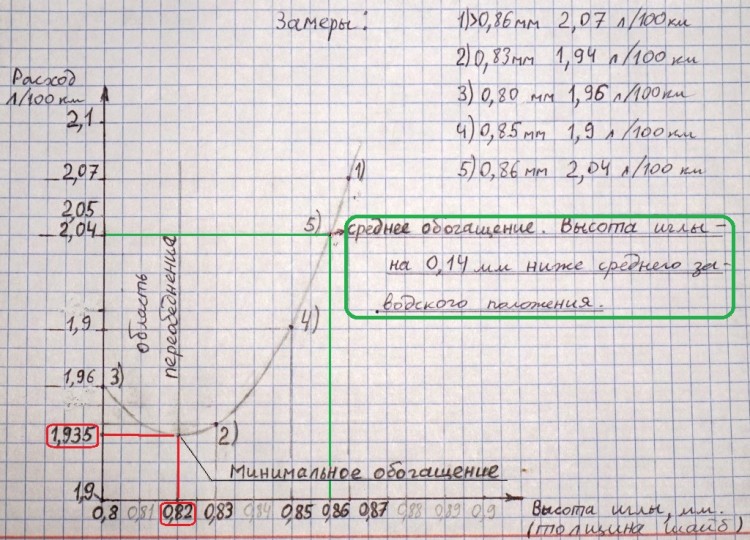 Замеры:
1)>0,86мм 2,07 л/100км
2) 0,83мм 1,94 л/100 км
3) 0,80 мм 1,96 л/100км
4) 0,85мм 1,9 л/100км
5) 0,86 мм 2,04 л/100 км
Расход
л/100 км
2,1
2,07
1)
2,05
2,04
5)
среднее обогащение. Высота иглы -
на 0,14 мм ниже среднего за-
водского положения.
область
переобеднения
1,9
4)
1,96
3)
1,935
2)
Минимальное обогащение
1,9
0,8 0,81 0,82 0,83 0,84 0,85 0,86 0,87 0,88 0,89 0,9
Высота иглы, мм.
(толщина шайб)